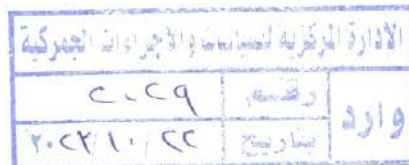 الادارة المركزية للسياسات والاجراءات الجمركية
وارد
رقم ٢٠٢٩
بتاريخ ٢٠٢٣/١٠/٢٢